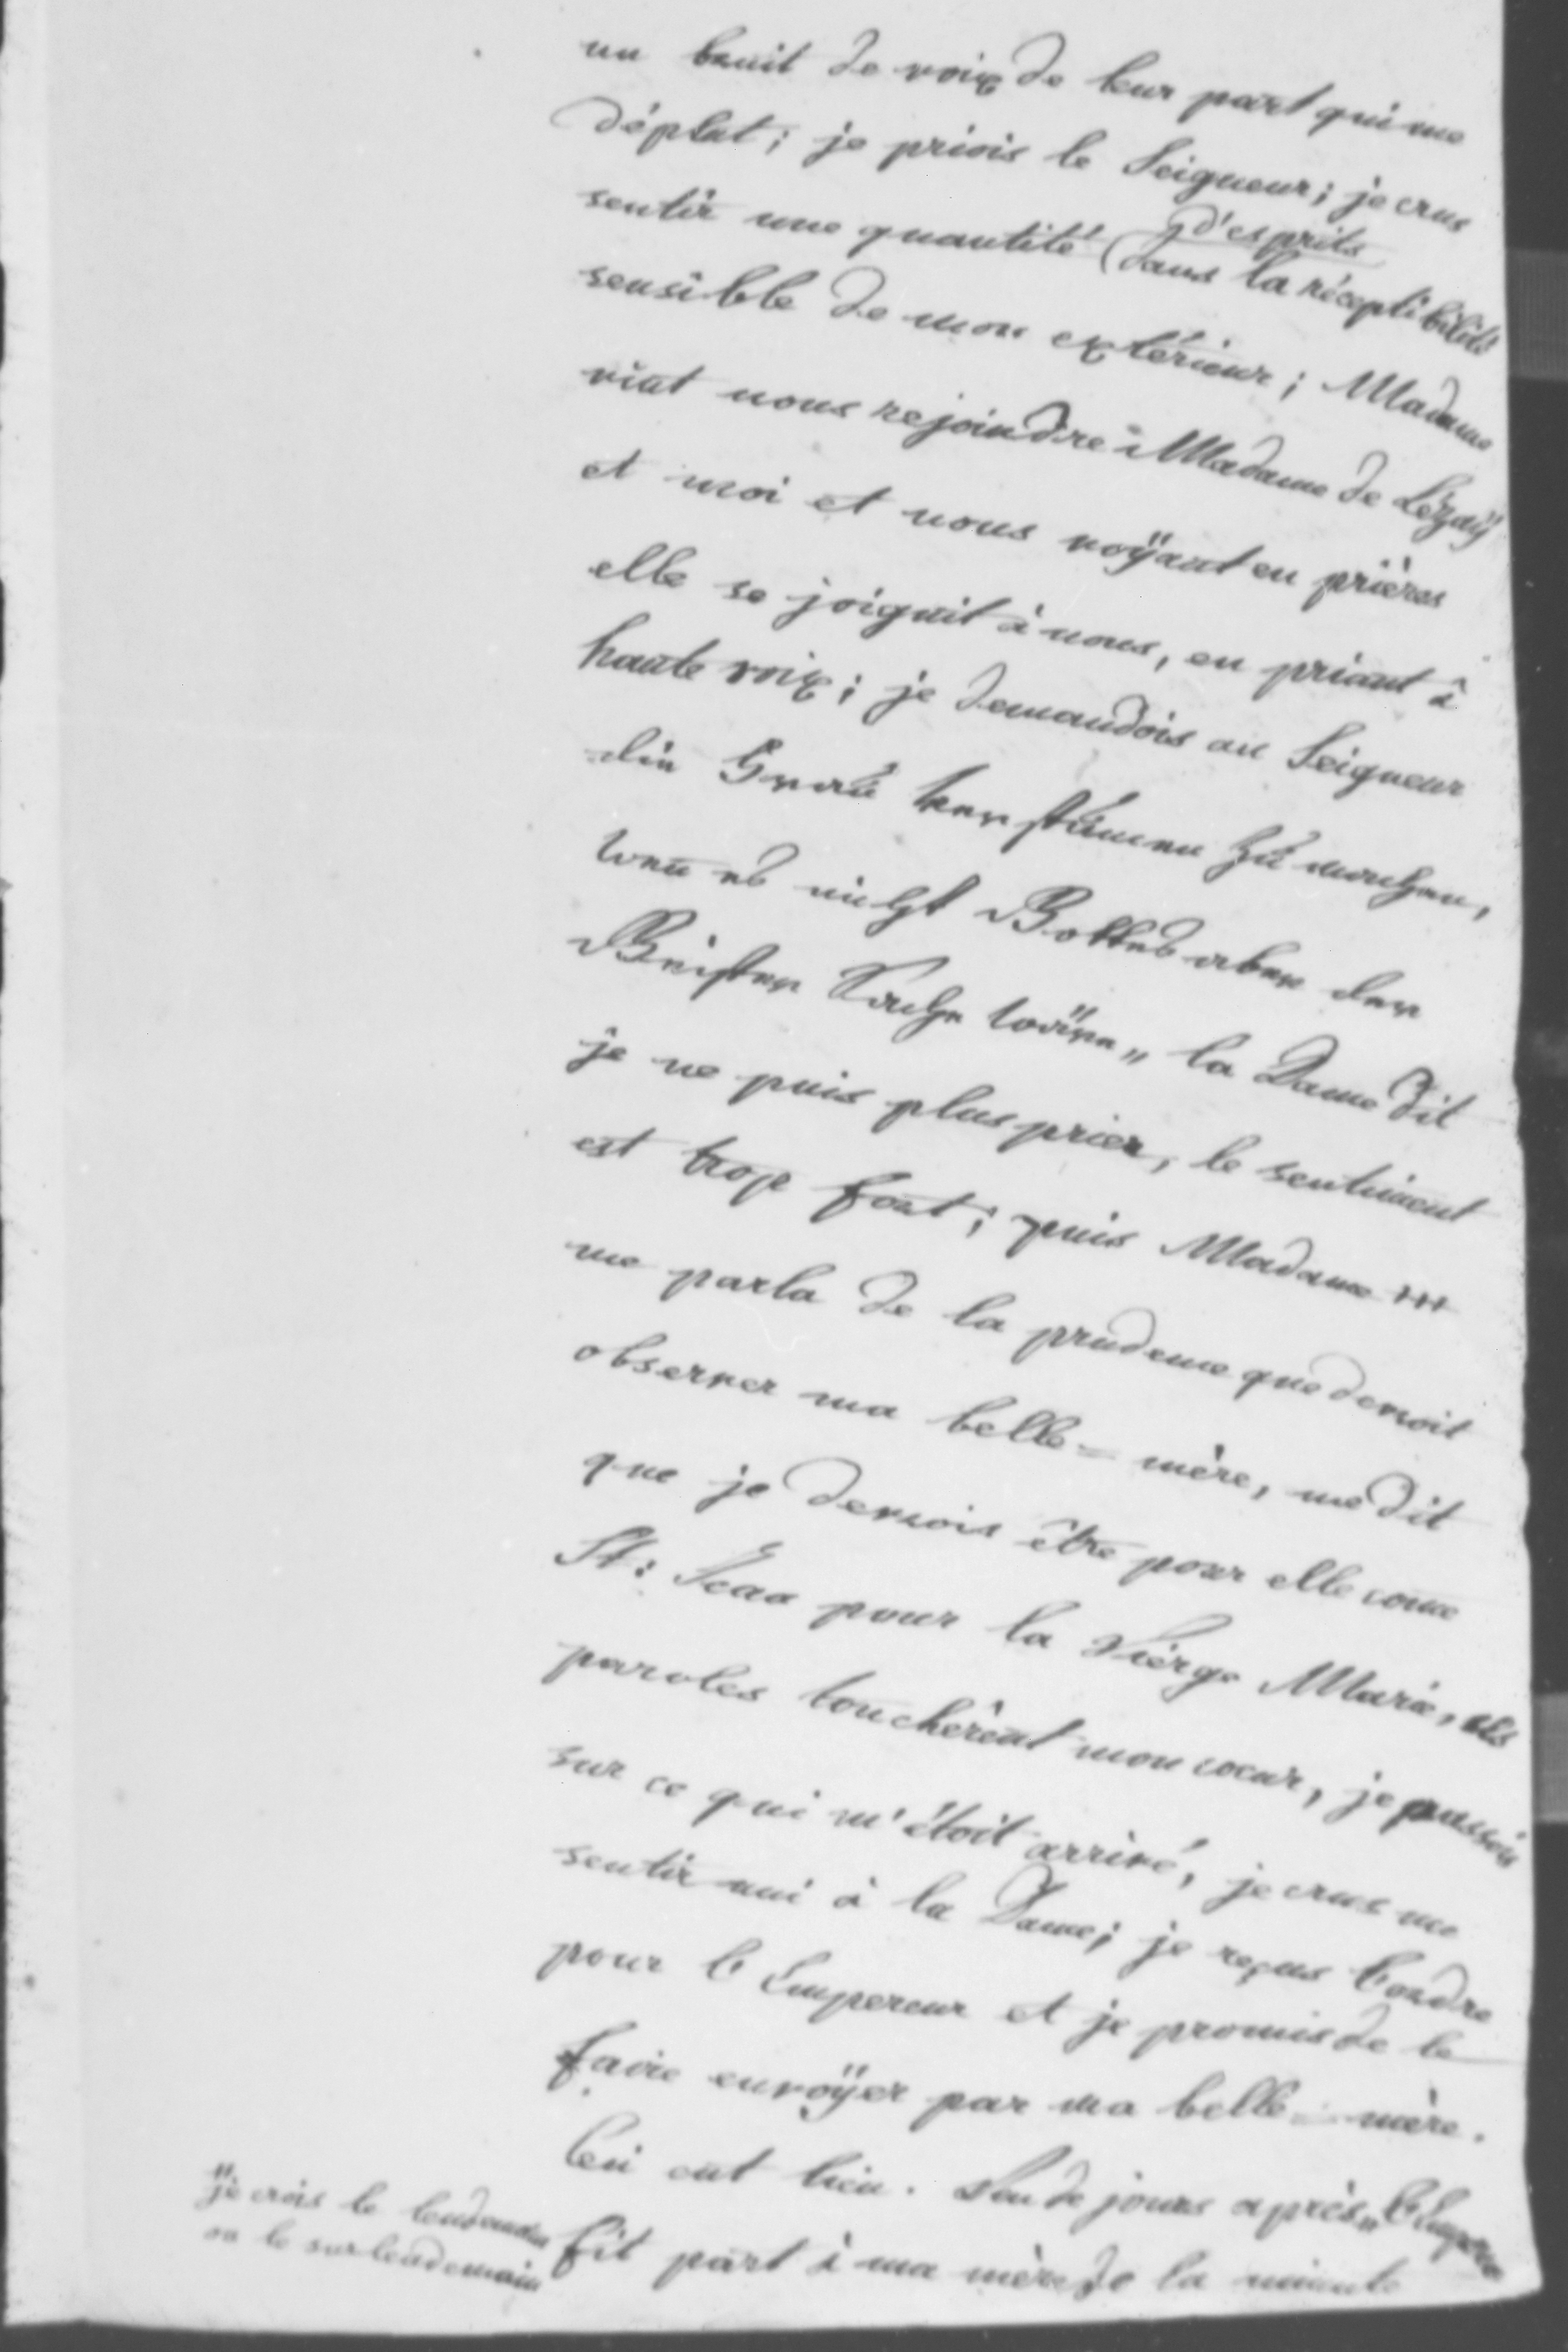 un bruit de voix de leur part qui me
déplut; je priois le Seigneur; je crus
sentir une quantité d'esprits dans la réceptibilité
sensible de mon extérieur; Madame
vint nous rejoindre Madame de Lézaÿ
et moi et nous voÿant en prières
elle se joignit à nous, en priant à
haute voix; je demandois au Seigneur
die Frau verstumen zu machen,
wen es nicht Gottes aber der
Geister Sache wäre„ la Dame dit
je ne puis plus prier, le sentiment
est trop fort; puis Madame +++
me parla de la prudence que devoit
observer ma belle-mère, me dit
que je devrois être pour elle come
St: Jean pour la Vièrge Marie, ces
paroles touchèrent mon coeur, je passois
sur ce qui m'étoit arrivé, je crus me
sentir uni à la Dame; je reçus l'ordre
pour l'Empereur et je promis de le
faire envoÿer par ma belle-mère.
Ceci eut lieu. Peu de jours après„ l'Empereur
"je crois le lendemain
ou le surlendemain
fit part à ma mère de la